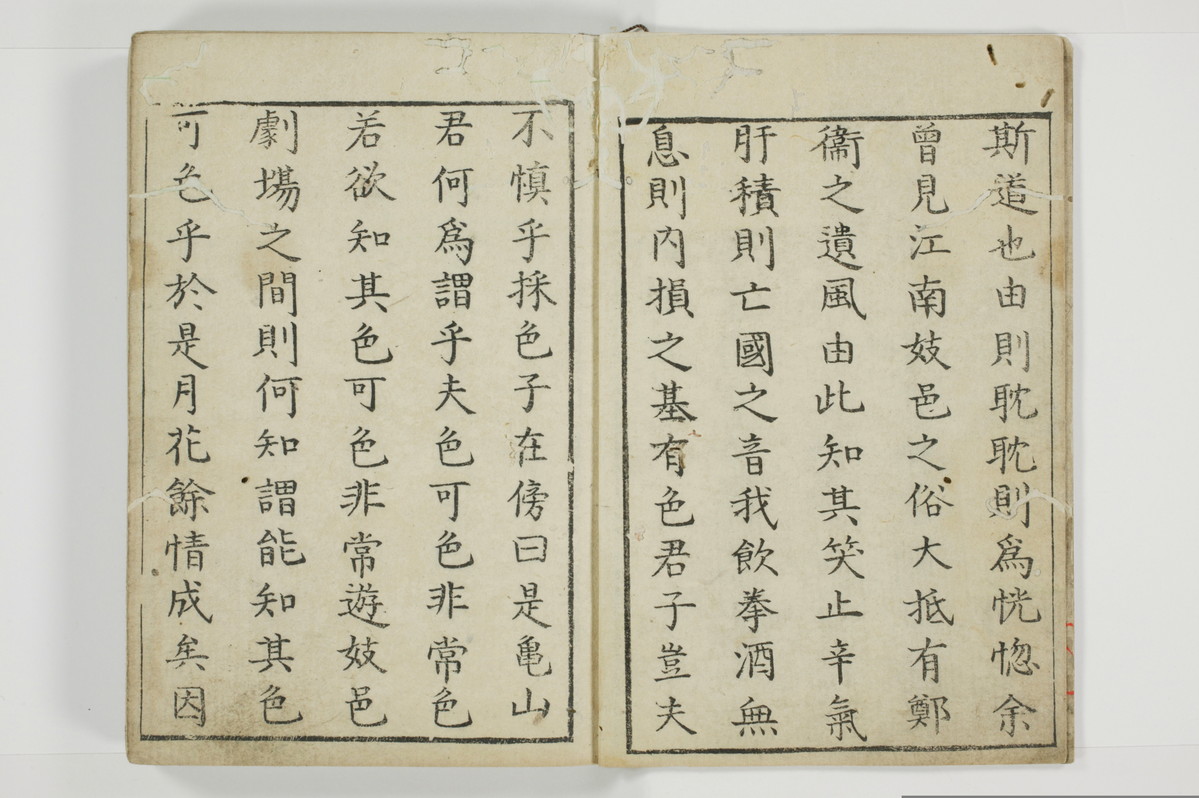 斯道也由則耽耽則爲恍惚余
曾見江南妓邑之俗大抵有鄭
衞之遺風由此知其笑止辛氣
肝積則亡國之音我飮拳酒無
息則内損之基有色君子豈夫
不愼乎採色子在傍曰是亀山
君何爲謂乎夫色可色非常色
若欲知其色可色非常遊妓邑
劇場之間則何知謂能知其色
可色乎於是月花餘情成矣因